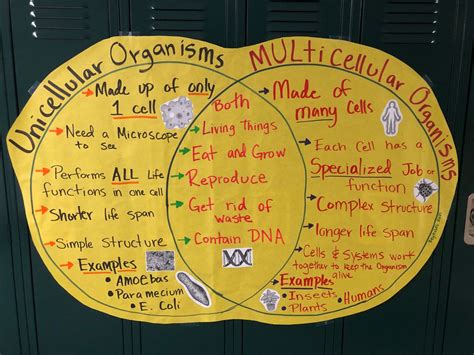 Unicellular Organisms
Made up of only
1 cell
Need a Microscope
to see
Performs ALL life
functions in one cell
Shorter life span
Simple Structure
Examples
• Amoebas
• Paramecium
• E. Coli
Both
Living Things
Eat and Grow
Reproduce
Get rid of
waste
Contain DNA
MULticellular Organisms
Made of
many Cells
Each Cell has a
Specialized Job or
function
Complex Structure
longer life span
Cells & Systems work
together to keep the Organism
alive
Examples
• Insects
• Plants
• Humans